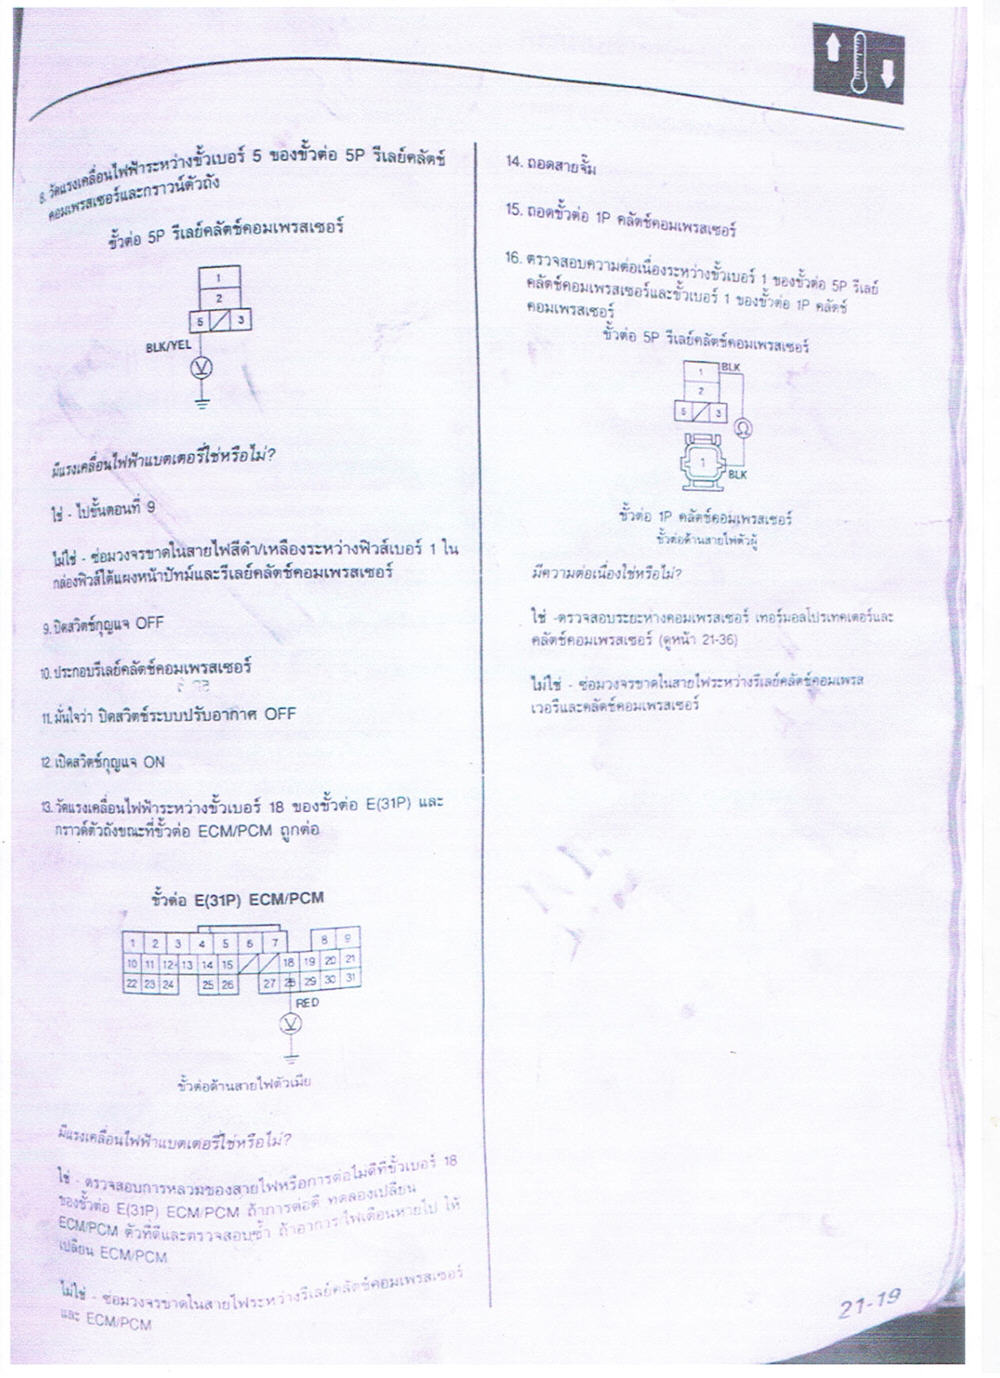 8. วัดแรงเคลื่อนไฟฟ้าระหว่างขั้วเบอร์ 5 ของขั้วต่อ 5P รีเลย์คลัตช์
คอมเพรสเซอร์และกราวน์ตัวถัง
ขั้วต่อ 5P รีเลย์คลัตช์คอมเพรสเซอร์
1
2
5 3
BLK/YEL
V
มีแรงเคลื่อนไฟฟ้าแบตเตอรี่ใช่หรือไม่?
ใช่ - ไปขั้นตอนที่ 9
ไม่ใช่ - ซ่อมวงจรขาดในสายไฟสีดำ/เหลืองระหว่างฟิวส์เบอร์ 1 ใน
กล่องฟิวส์ใต้แผงหน้าปัทม์และรีเลย์คลัตช์คอมเพรสเซอร์
9. ปิดสวิตช์กุญแจ OFF
10. ประกอบรีเลย์คลัตช์คอมเพรสเซอร์
11. มั่นใจว่า ปิดสวิตช์ระบบปรับอากาศ OFF
12. เปิดสวิตช์กุญแจ ON
13. วัดแรงเคลื่อนไฟฟ้าระหว่างขั้วเบอร์ 18 ของขั้วต่อ E(31P) และ
กราวด์ตัวถังขณะที่ขั้วต่อ ECM/PCM ถูกต่อ
ขั้วต่อ E(31P) ECM/PCM
1 2 3 4 5 6 7 8 9
10 11 12 13 14 15 18 19 20 21
22 23 24 25 26 27 28 29 30 31
RED
V
ขั้วต่อด้านสายไฟตัวเมีย
มีแรงเคลื่อนไฟฟ้าแบตเตอรี่ใช่หรือไม่?
ใช่ - ตรวจสอบการหลวมของสายไฟหรือการต่อไม่ดีที่ขั้วเบอร์ 18
ของขั้วต่อ E(31P) ECM/PCM ถ้าการต่อดี ทดลองเปลี่ยน
ECM/PCM ตัวที่ดีและตรวจสอบซ้ำ ถ้าอาการ/ไฟเตือนหายไป ให้
เปลี่ยน ECM/PCM
ไม่ใช่ - ซ่อมวงจรขาดในสายไฟระหว่างรีเลย์คลัตช์คอมเพรสเซอร์
และ ECM/PCM
14. ถอดสายจั๊ม
15. ถอดขั้วต่อ 1P คลัตช์คอมเพรสเซอร์
16. ตรวจสอบความต่อเนื่องระหว่างขั้วเบอร์ 1 ของขั้วต่อ 5P รีเลย์
คลัตช์คอมเพรสเซอร์และขั้วเบอร์ 1 ของขั้วต่อ 1P คลัตช์
คอมเพรสเซอร์
ขั้วต่อ 5P รีเลย์คลัตช์คอมเพรสเซอร์
1 BLK
2
5 3
Ω
1
BLK
ขั้วต่อ 1P คลัตช์คอมเพรสเซอร์
ขั้วต่อด้านสายไฟตัวผู้
มีความต่อเนื่องใช่หรือไม่?
ใช่ -ตรวจสอบระยะห่างคอมเพรสเซอร์ เทอร์มอลโปรเทคเตอร์และ
คลัตช์คอมเพรสเซอร์ (ดูหน้า 21-36)
ไม่ใช่ - ซ่อมวงจรขาดในสายไฟระหว่างรีเลย์คลัตช์คอมเพรส
เวอร์และคลัตช์คอมเพรสเซอร์
21-19